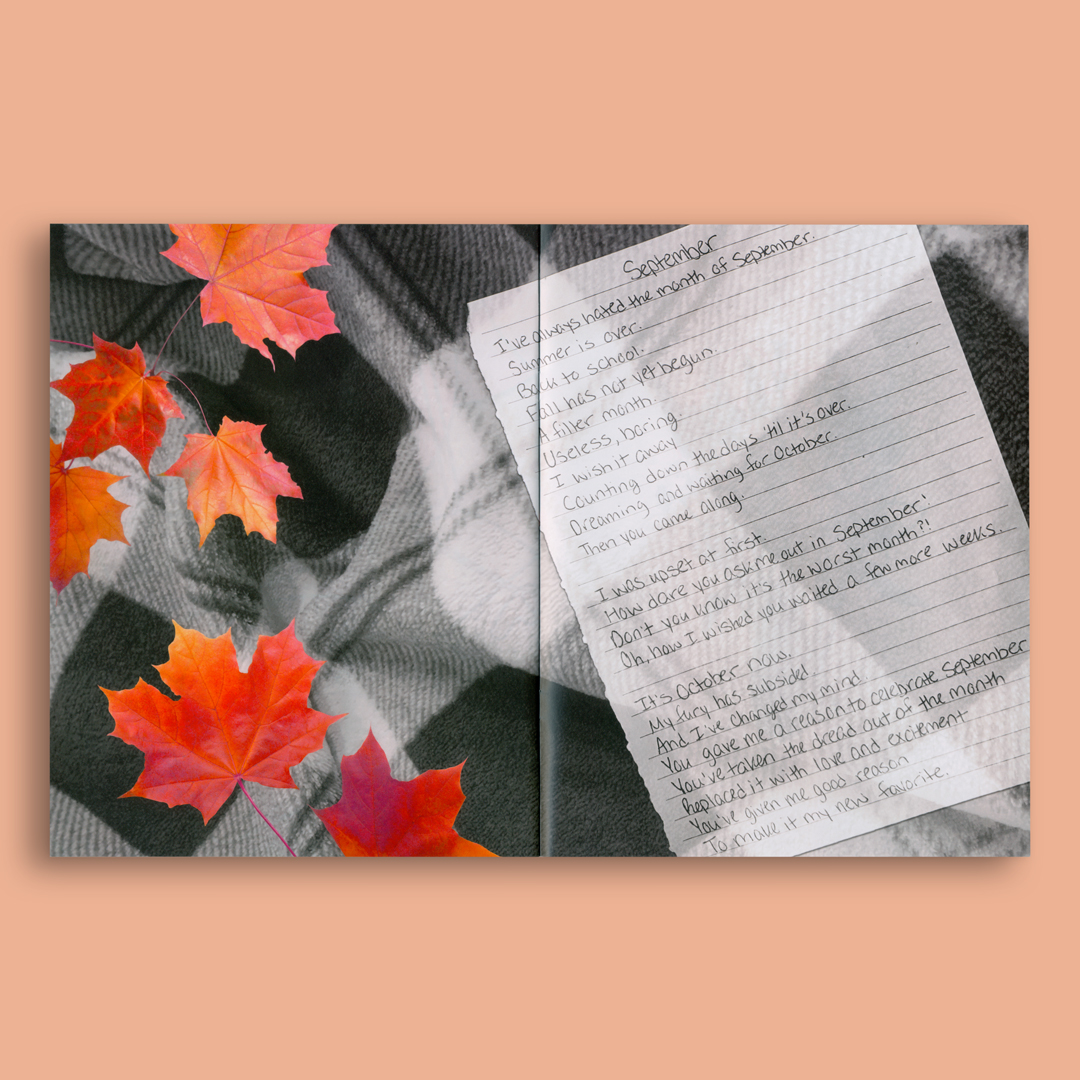 September
I've always hated the month of September.
Summer is over.
Back to school.
Fall has not yet begun.
A filler month.
Useless, boring.
I wish it away
Counting down the days 'til it's over.
Dreaming and waiting for October.
Then you came along.
I was upset at first.
How dare you ask me out in September!
Don't you know it's the worst month?!
Oh, how I wished you waited a few more weeks.
It's October now.
My fury has subsided
And I've changed my mind
You gave me a reason to celebrate September
You've taken the dread out of the month
Replaced it with love and excitement
You've given me good reason
To make it my new favorite.